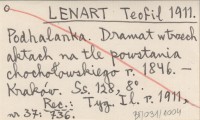 LENART Teofil 1911.
Podhalanka. Dramat w trzech
aktach na tle powstania
chochołowskiego r. 1846. —
Kraków. Ss. 128, 8°.
Rec.: Tyg. Il. r. 1911,
nr 37: 736.